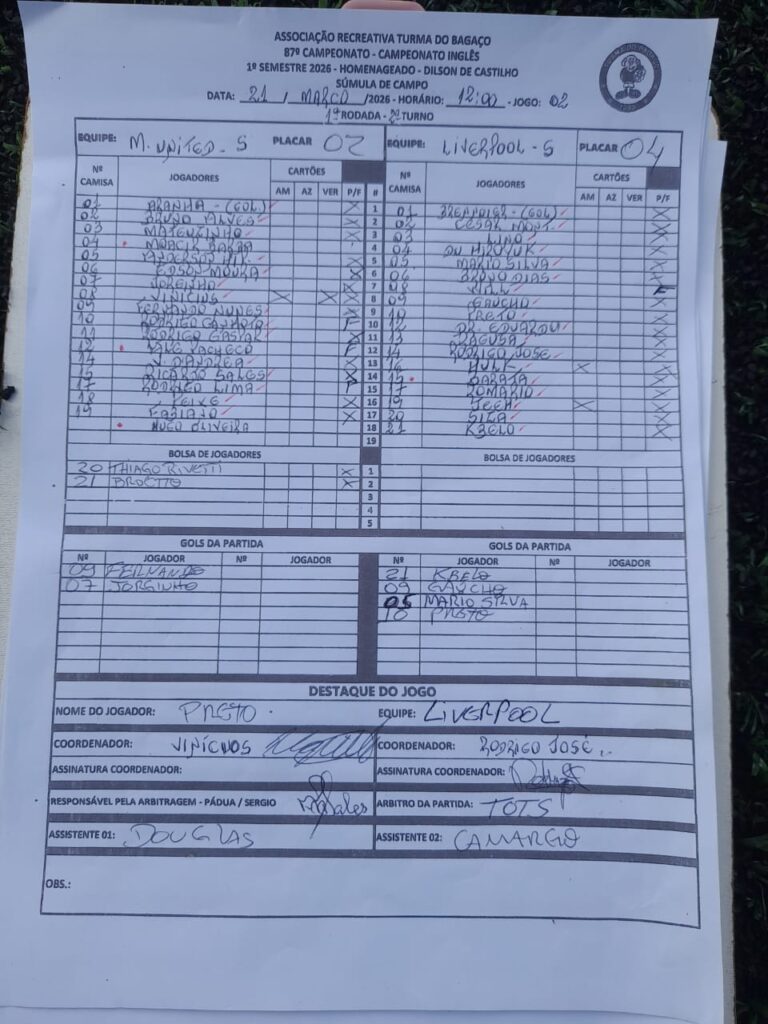 ASSOCIAÇÃO RECREATIVA TURMA DO BAGAÇO
87º CAMPEONATO - CAMPEONATO INGLÊS
1º SEMESTRE 2026 - HOMENAGEADO - DILSON DE CASTILHO
SÚMULA DE CAMPO
DATA: 21 / MARÇO /2026 - HORÁRIO: 12:00 - JOGO: 02
1ª RODADA - 2º TURNO
EQUIPE: M. UNITED - S PLACAR 02 EQUIPE: LIVERPOOL - S PLACAR 04
Nº CAMISA JOGADORES CARTÕES AM AZ VER P/F # Nº CAMISA JOGADORES CARTÕES AM AZ VER P/F
01 ARANHA - (GOL) X 1 01 (GOL) X
02 BRUNO ALVES X 2 02 CESAR MONT. X
03 X 3 03 LINO X
04 MOACIR 4 04 X
05 ANDERSON X 5 05 MARIO SILVA X
06 EDSON MOURA X 6 06 BRUNO DIAS X
07 JORGINHO X 7 08
08 VINICIUS X X X 8 09 GAUCHO X
09 FERNANDO NUNES X 9 10 PRETO X
10 RODRIGO CANHOTO F 10 12 DR. EDUARDO X
11 RODRIGO GASPAR X 11 13 RAGUSA X
12 PACHECO F 12 14 RODRIGO JOSÉ X
14 X 13 16 HULK X X
15 RICARDO SALES 14 BARATA X
17 RODRIGO LIMA 15 ROMARIO X
18 PEIXE X 16 19 X X
19 FABIANO X 17 20 X
HUGO OLIVEIRA 18 21 KBELO X
19
BOLSA DE JOGADORES BOLSA DE JOGADORES
20 THIAGO RIVETTI X 1
21 BROETTO X 2
3
4
5
GOLS DA PARTIDA GOLS DA PARTIDA
Nº JOGADOR Nº JOGADOR Nº JOGADOR Nº JOGADOR
09 FERNANDO 21 KBELO
07 JORGINHO 09 GAUCHO
05 MARIO SILVA
10 PRETO
DESTAQUE DO JOGO
NOME DO JOGADOR: PRETO EQUIPE: LIVERPOOL
COORDENADOR: VINÍCIUS COORDENADOR: RODRIGO JOSÉ
ASSINATURA COORDENADOR: ASSINATURA COORDENADOR:
RESPONSÁVEL PELA ARBITRAGEM - PÁDUA / SERGIO ARBITRO DA PARTIDA: TOTS
ASSISTENTE 01: DOUGLAS ASSISTENTE 02: CAMARGO
OBS.: